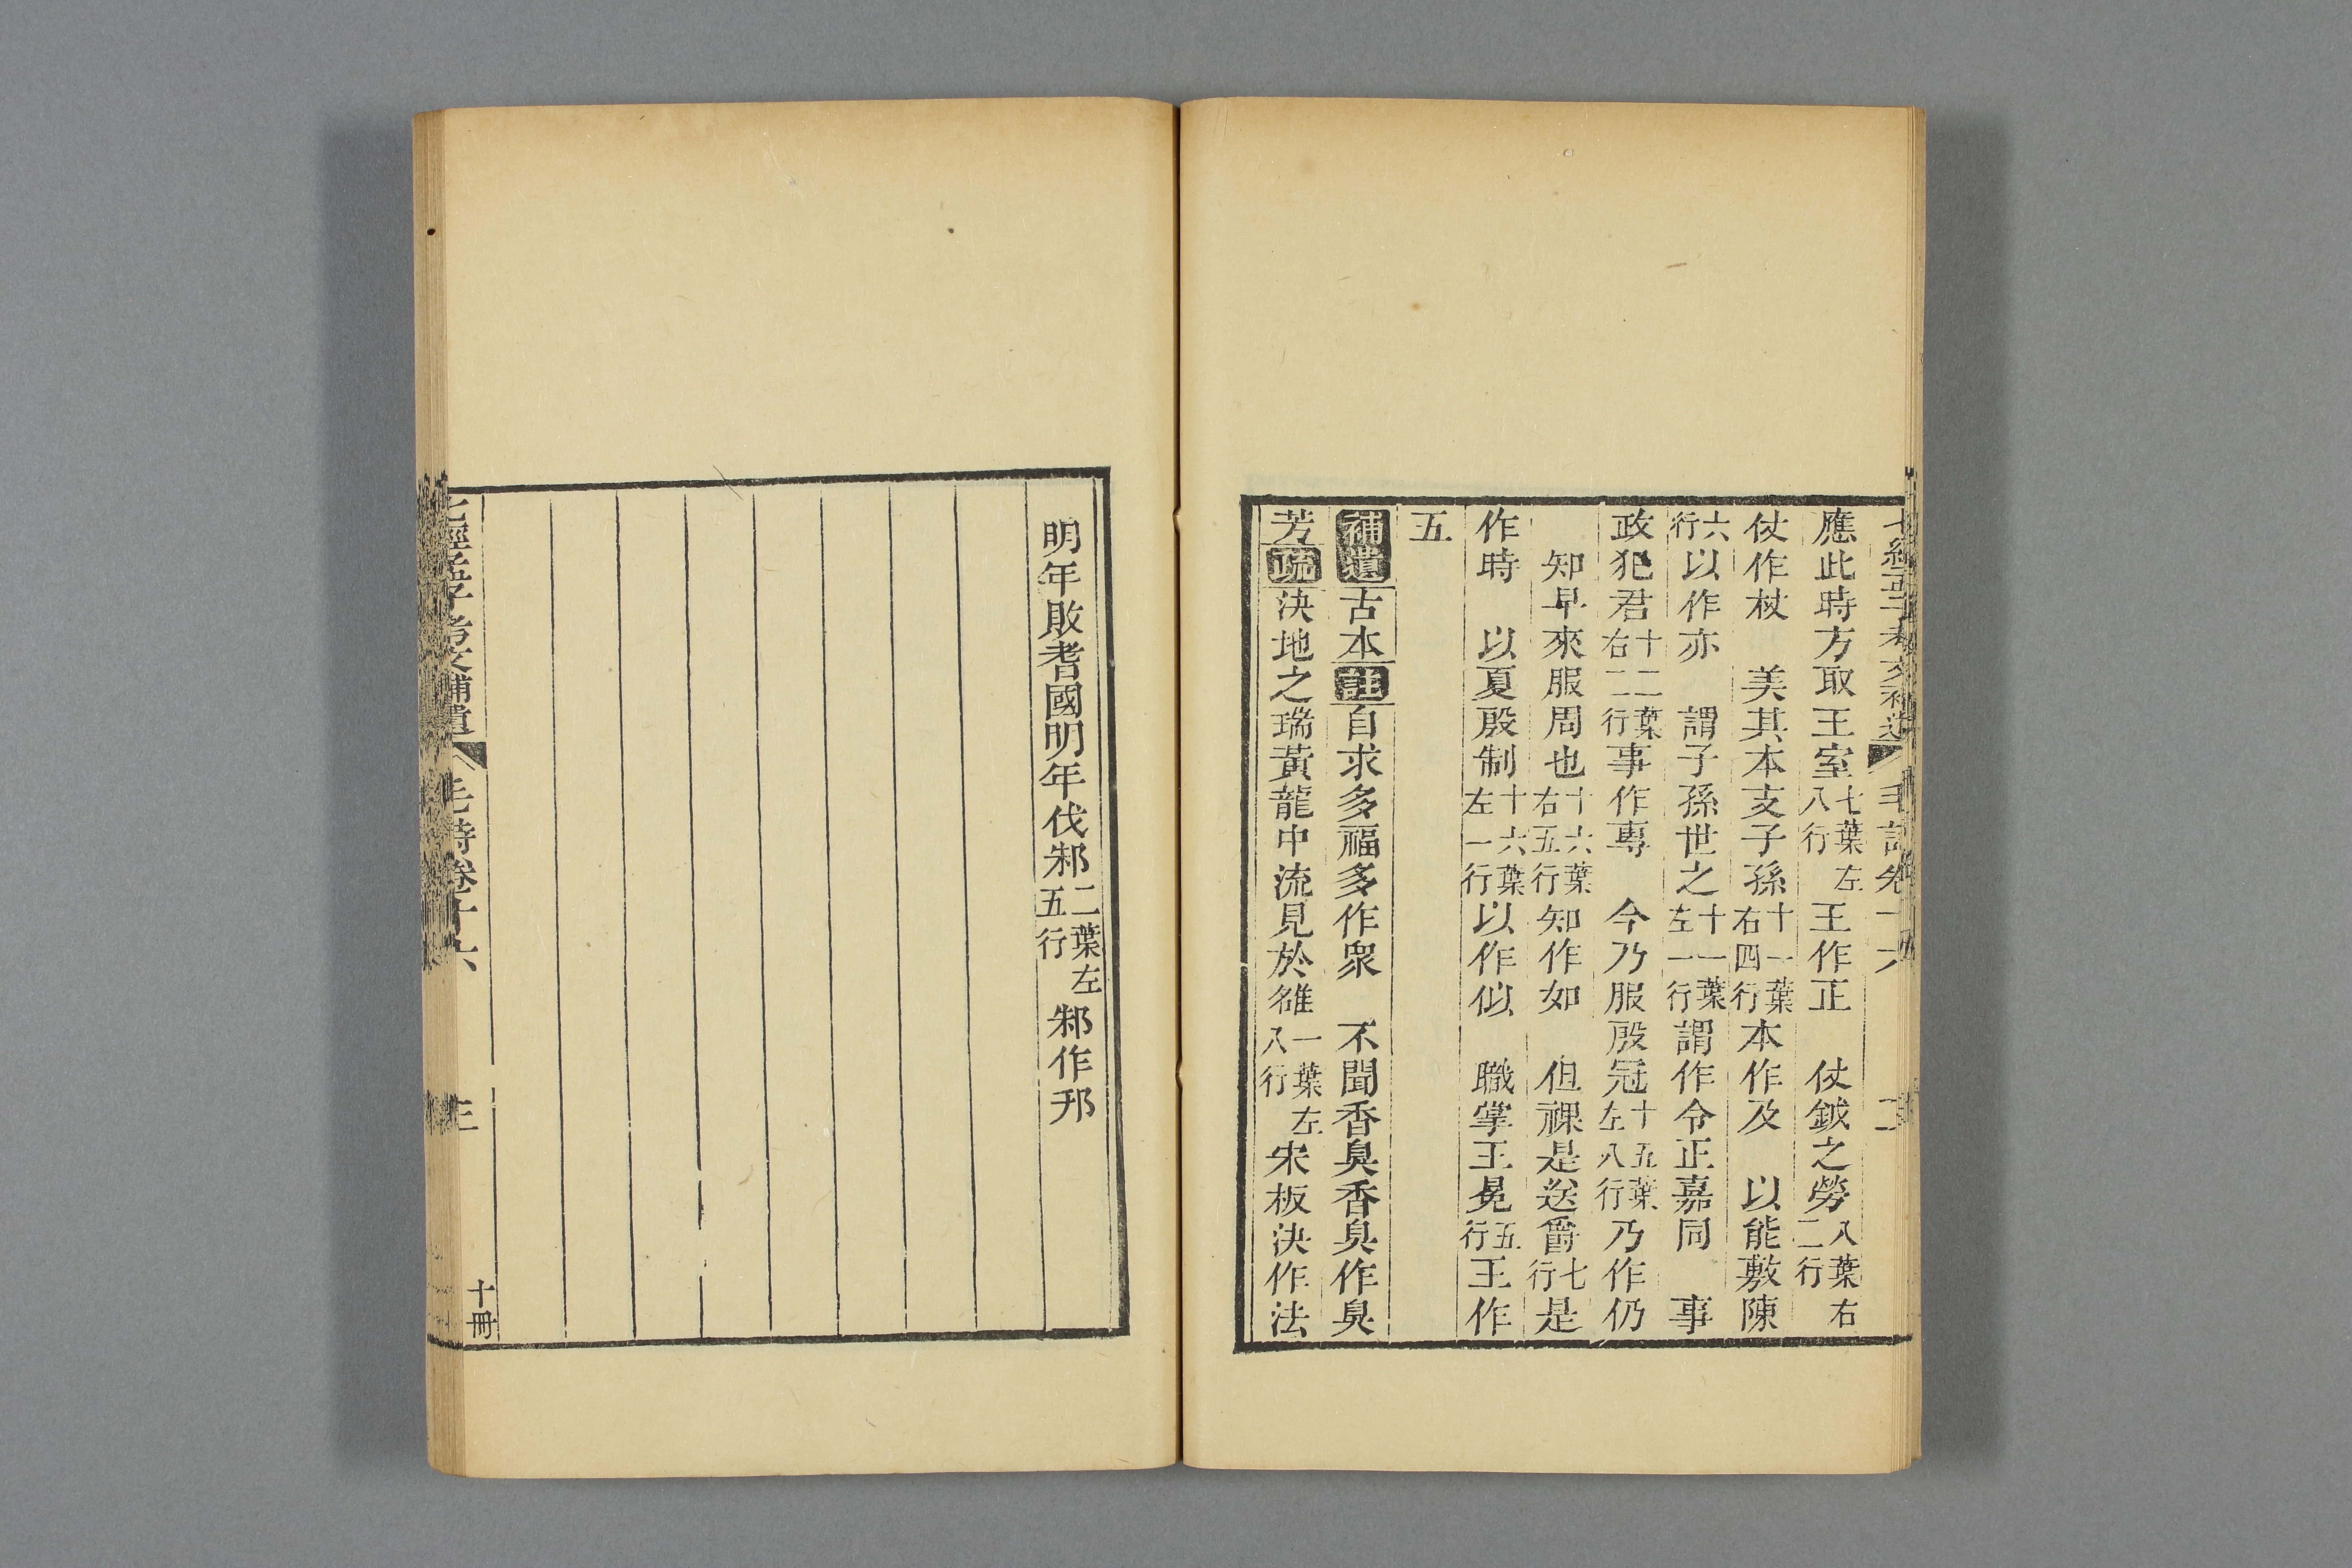 七經孟子考文補遺 毛詩卷十六 二
應此時方取王室七葉左八行王作正 仗鉞之勞八葉右二行
仗作杖 美其本支子孫十一葉右四行本作及 以能敷陳
六行以作亦 謂子孫世之十一葉左一行謂作令正嘉同 事
政犯君十二葉右二行事作專 今乃服殷冠十五葉左八行乃作仍
知早來服周也十六葉右五行知作如 但祼是送爵七行是
作時 以夏殷制十六葉左一行以作似 職掌王冕五行王作
五
補遺古本註自求多福多作衆 不聞香臭香臭作臭
芳疏決地之瑞黃龍中流見於雒一葉左八行宋板決作法
明年敗耆國明年伐邾二葉左五行邾作邘
七經孟子考文補遺 毛詩卷十六 三 十冊